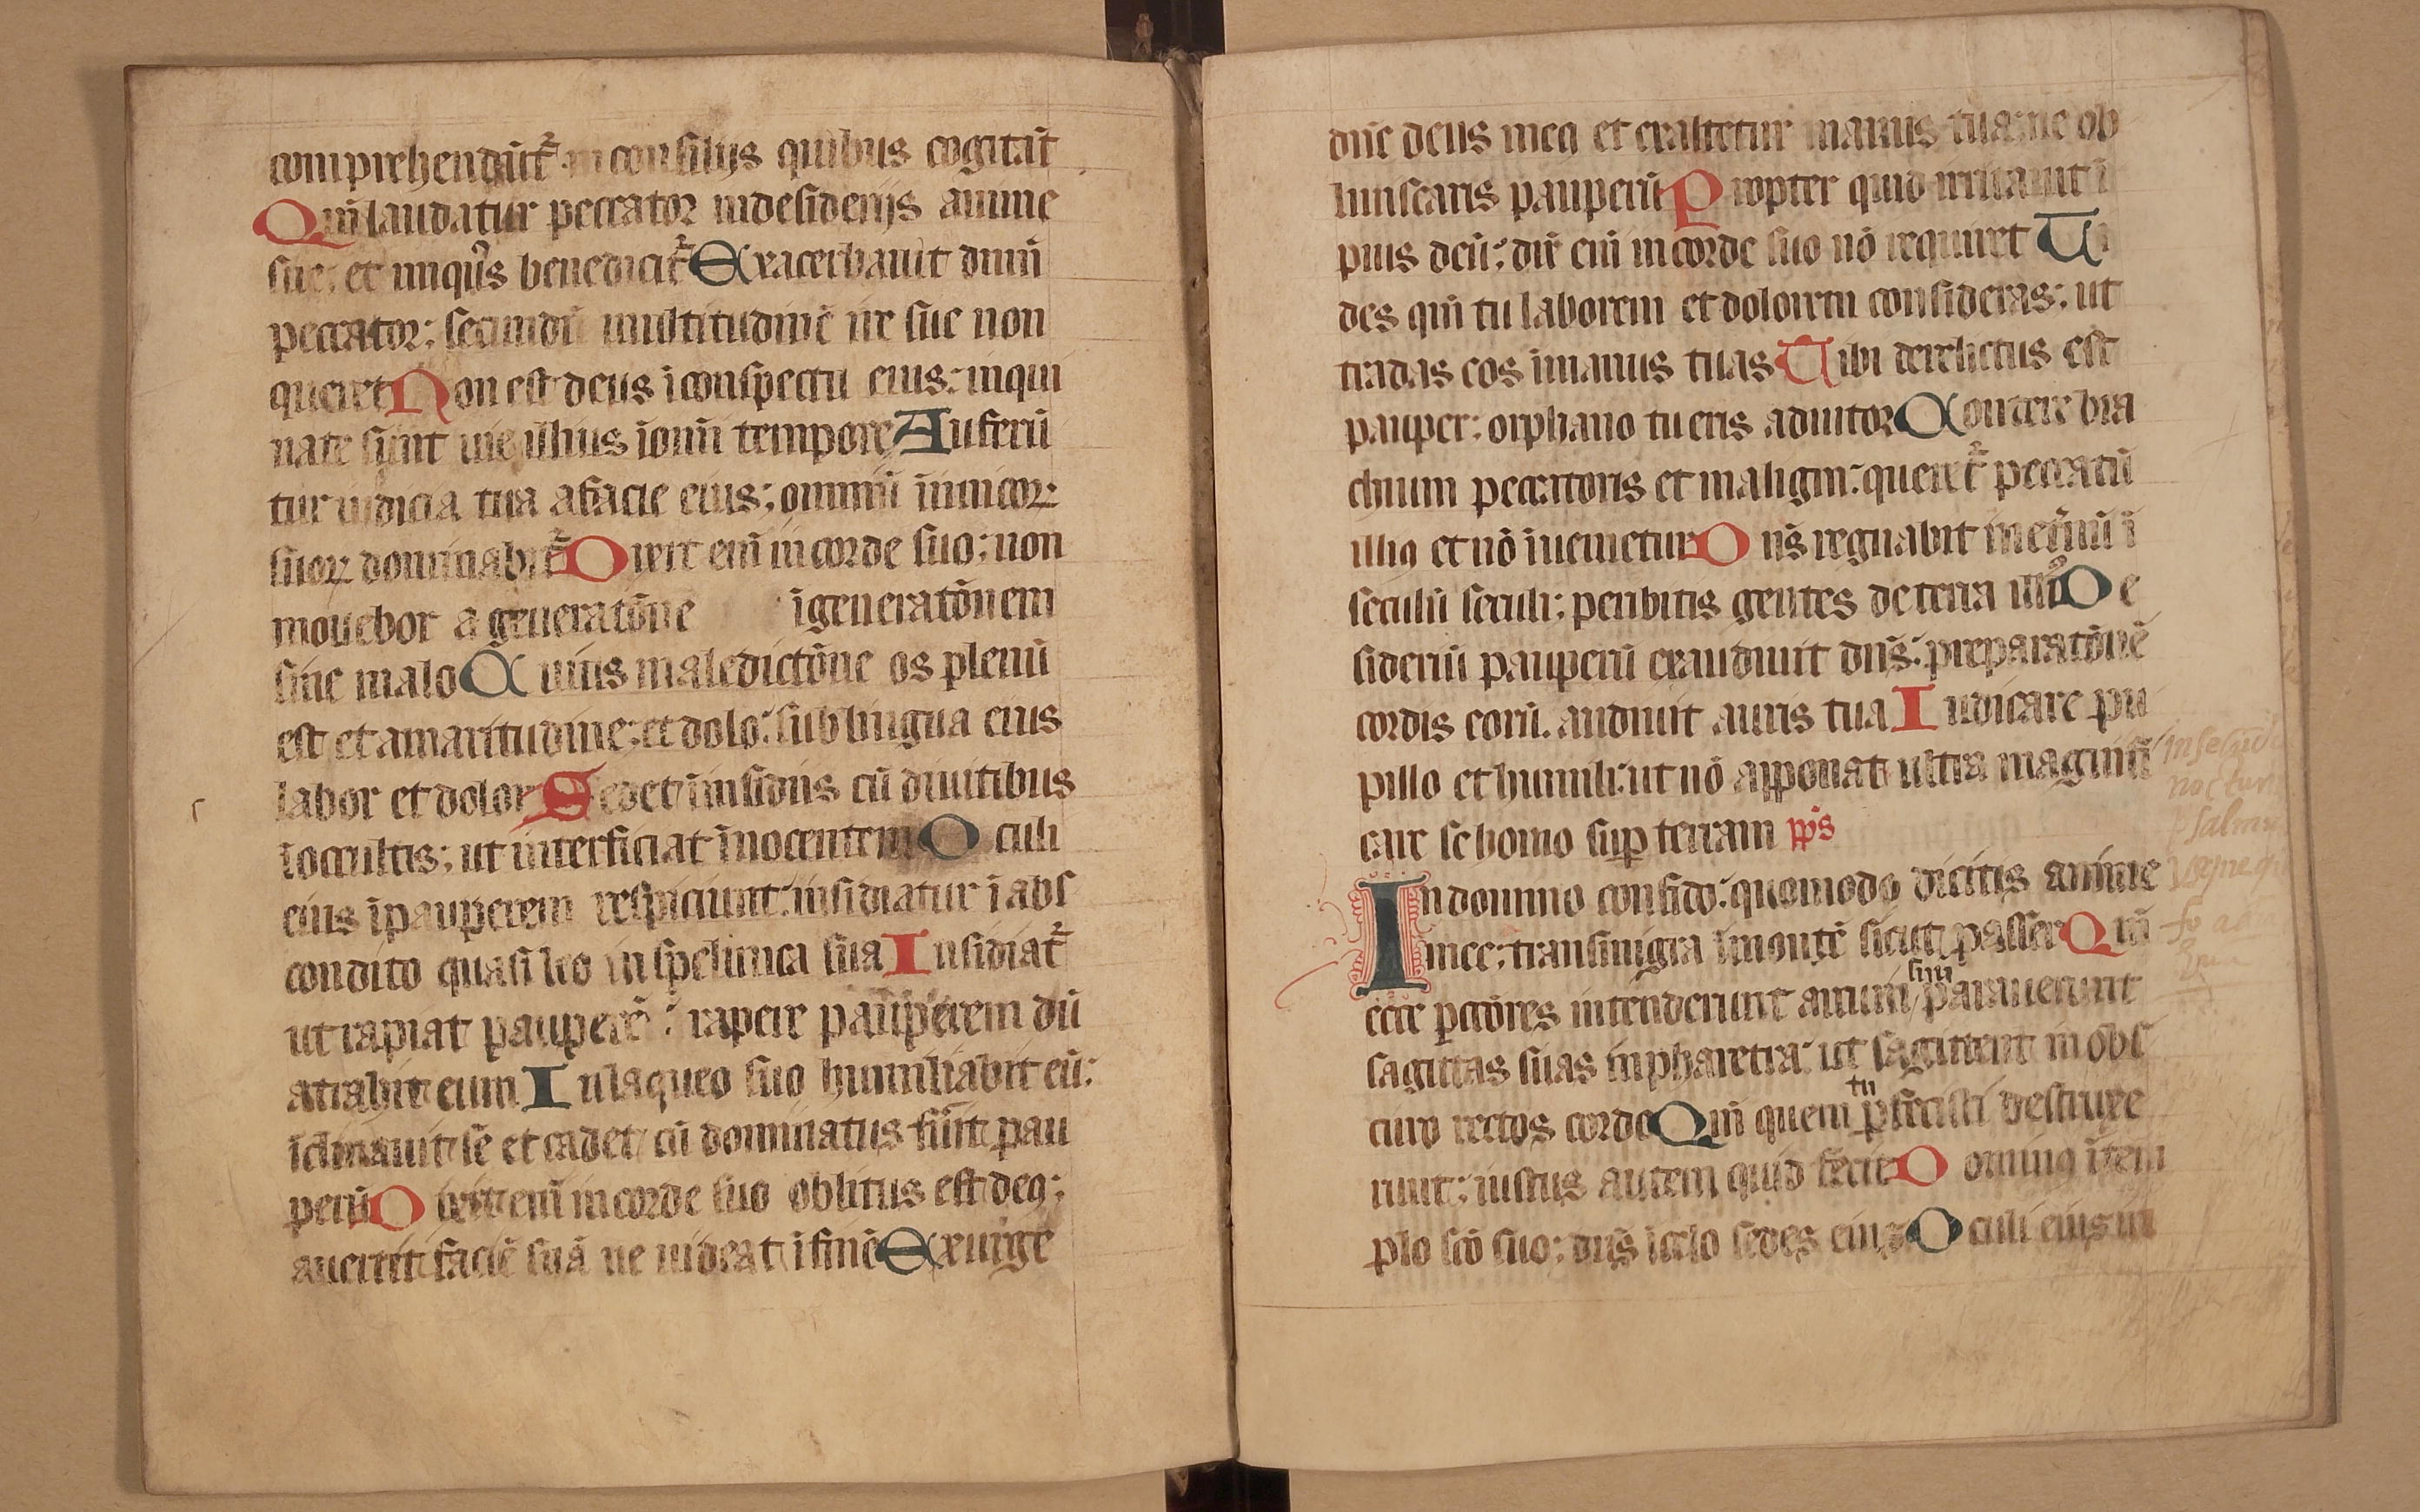 comprehendūt᷑ in consilijs quibus cogitāt
Qm̄ laudatur peccator in desiderijs anime
sue: et iniqus benedicit᷑ Exacerbauit dnm̄
peccator: secundū multitudinē ire sue non
queret Non est deus ī conspectu eius: inqui
nate sunt uie illius ī om̄i tempore Auferū
tur iudicia tua a facie eius: omniū inimicoꝝ
suoꝝ dominabit᷑ Dixit enī in corde suo: non
mouebor a generatōne ī generatōnem
sine malo Cuius maledictōne os plenū
est et amaritudine: et dolo: sub lingua eius
labor et dolor Sedet ī insidiis cū diuitibus
ī occultis: ut interficiat īnocentem Oculi
eius ī pauperem respiciunt: insidiatur ī abs
condito quasi leo in spelunca sua Insidiat᷑
ut rapiat pauperē: rapere pauperem dū
atrahit eum In laqueo suo humiliabit eū:
īclinauit se et cadet cū dominatus fūit pau
perū Dixit enī in corde suo oblitus est deꝯ:
auertit faciē suā ne uideat ī finē Exurge
dn̄e deus meꝯ et exaltetur manus tua: ne ob
liuiscaris pauperū Propter quid irritauit ī
pius deū: dix̄ enī in corde suo nō requiret Ui
des qm̄ tu laborem et dolorem consideras: ut
tradas eos ī manus tuas Tibi derelictus est
pauper: orphano tu eris adiutor Contere bra
chium peccatoris et maligni: queret᷑ peccatū
illiꝯ et nō īuenietur Dn̄s regnabit in et̄nū ī
seculū seculi: peribitis gentes de terra illiꝰ De
siderium pauperū exaudiuit dn̄s: preparatōnē
cordis eorū audiuit auris tua Iudicare pu
pillo et humili: ut nō apponat ultra magnifi
care se homo suꝑ terram ps̄
In domino confido: quomodo dicitis anime
mee: transmigra ī montē sicut passer Qm̄
ecce pctōres intenderunt arcum parauerunt
suū
sagittas suas in pharetra: ut sagittent in obs
curo rectos corde Qm̄ quem ꝑfecisti destruxe
tu
runt: iustus autem quid fecit Dominꝯ ī tem
plo scō suo: dn̄s ī celo sedes eius Oculi eius in
in secūdo
nocturn
psalmus